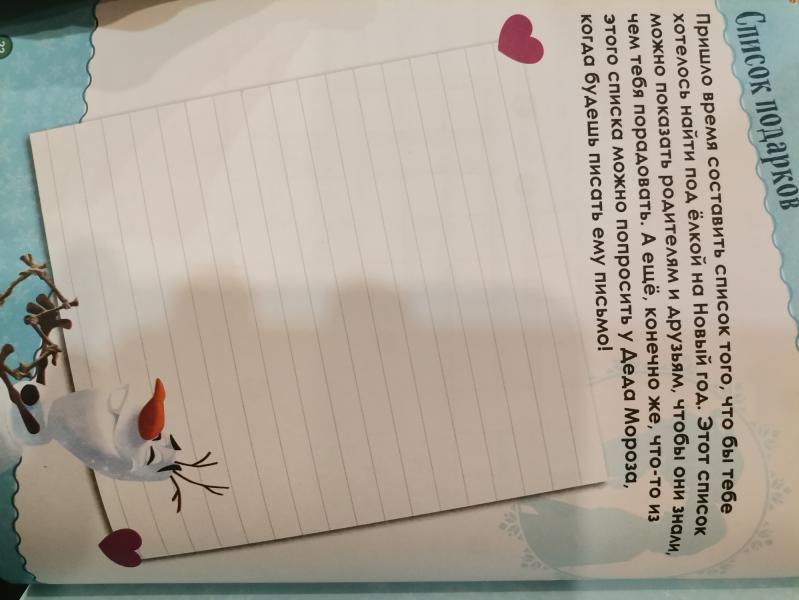 Список подарков
Пришло время составить список того, что бы тебе
хотелось найти под ёлкой на Новый год. Этот список
можно показать родителям и друзьям, чтобы они знали,
чем тебя порадовать. А ещё, конечно же, что-то из
этого списка можно попросить у Деда Мороза,
когда будешь писать ему письмо!